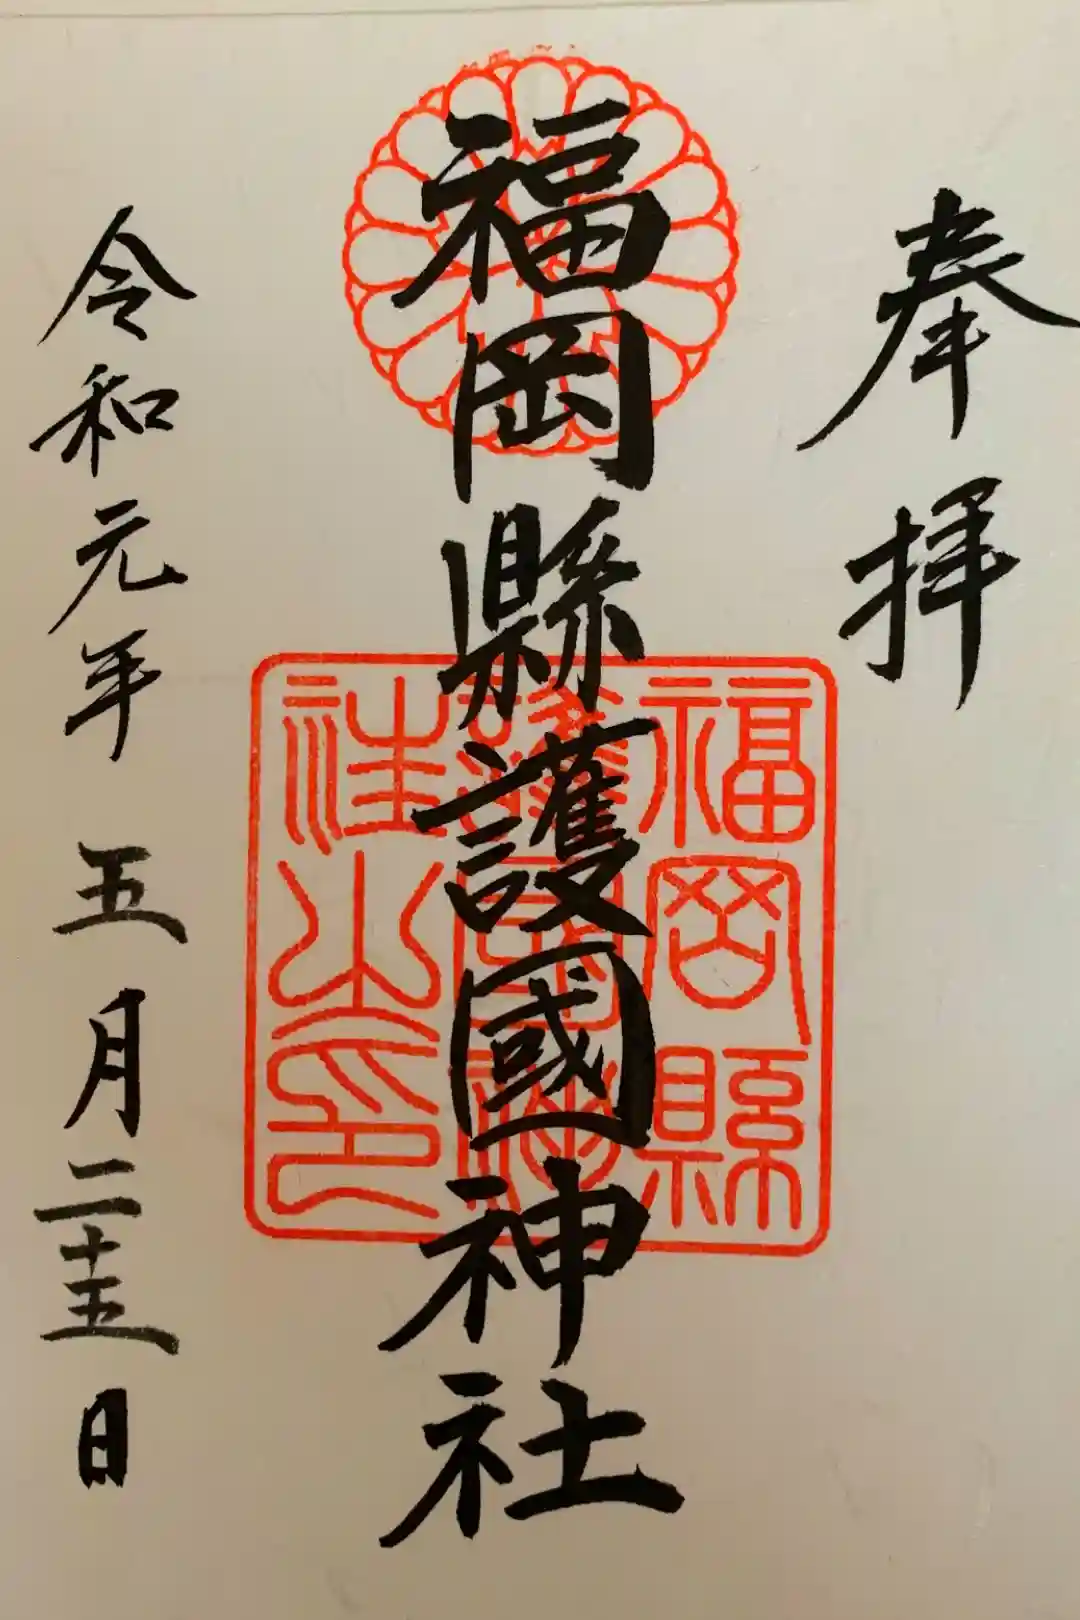 奉拝
福岡縣護國神社
令和元年五月二十五日
福岡縣
護國神
社之印